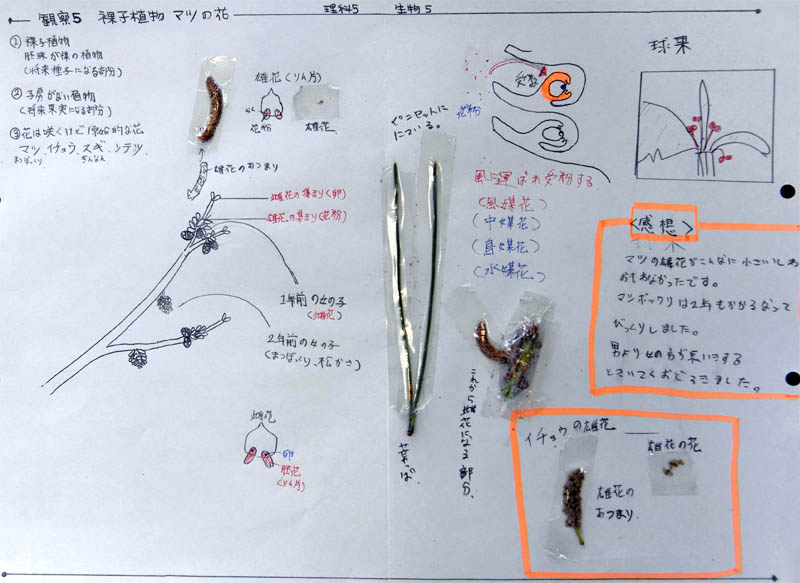 観察5 裸子植物 マツの花
理科5 生物5
① 裸子植物
胚珠が裸の植物
(将来種子になる部分)
② 子房がない植物
(将来果実になる部分)
③ 花は咲くけど原始的な花
マツ、イチョウ、スギ、ソテツ、
ぎんなん
雄花(りん片)
花粉
雄花
雄花のあつまり
雌花の集まり(卵)
雄花の集まり(花粉)
1年前の女の子
(雌花)
2年前の女の子
(まつぼっくり、松かさ)
雌花
卵
胚花
(りん片)
ピンセットに
にている。
葉っぱ
花粉
受粉
風に運ばれ受粉する
(風媒花)
(中媒花)
(鳥媒花)
(水媒花)
これから雌花になる部分、
球果
<感想>
マツの雄花がこんなに小さいとは
おもわなかったです。
マツボックリは2年もかかるなって
びっくりしました。
男より女の方が長いきする
ときいておどろきました。
イチョウの雄花
雄花の花
雄花の
あつまり